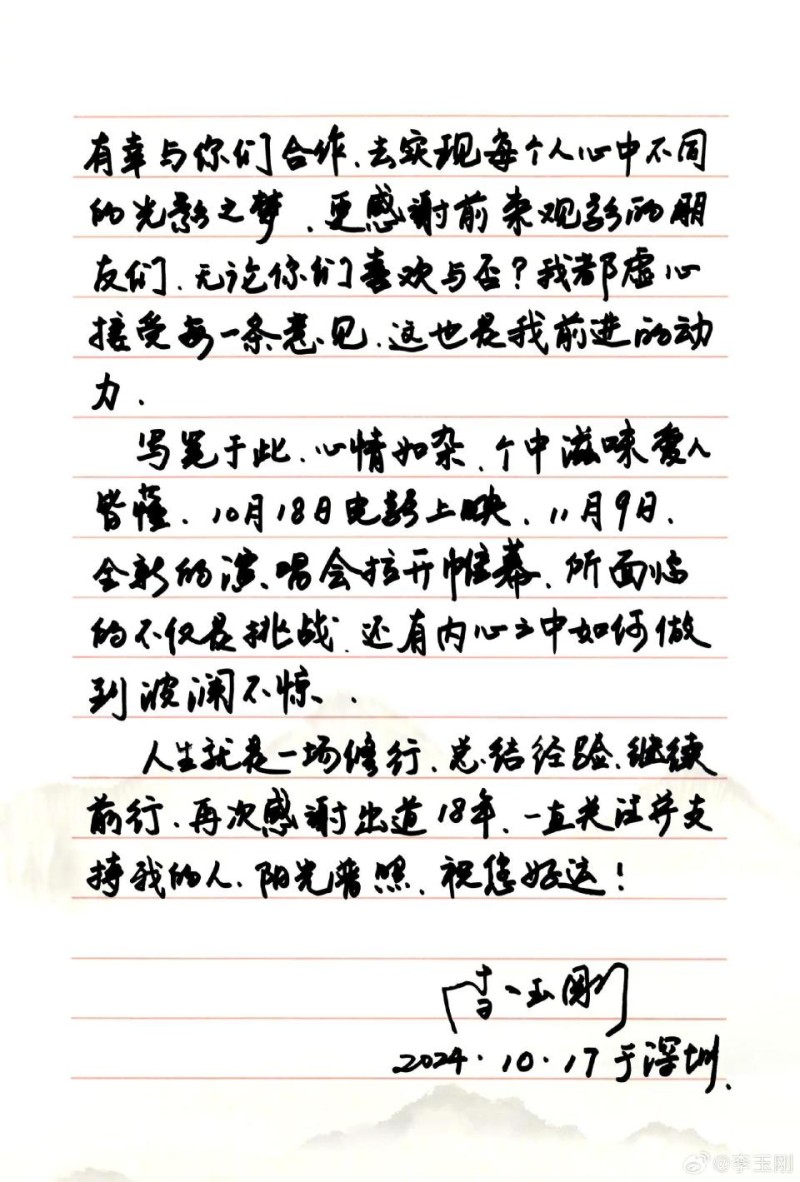 有幸与你们合作、去实现每个人心中不同
的光影之梦、更感谢前来观影的朋
友们、无论你们喜欢与否？我都虚心
接受每一条意见、这也是我前进的动
力.
写笔于此、心情如杂、个中滋味爱人
皆懂、10月18日电影上映、11月9日、
全新的演唱会拉开帷幕、所面临
的不仅是挑战、还有内心之中如何做
到波澜不惊.
人生就是一场修行、总结经验、继续
前行、再次感谢出道18年、一直关注并支
持我的人、阳光普照、祝您好运！
李玉刚
2024.10.17于深圳.
@李玉刚